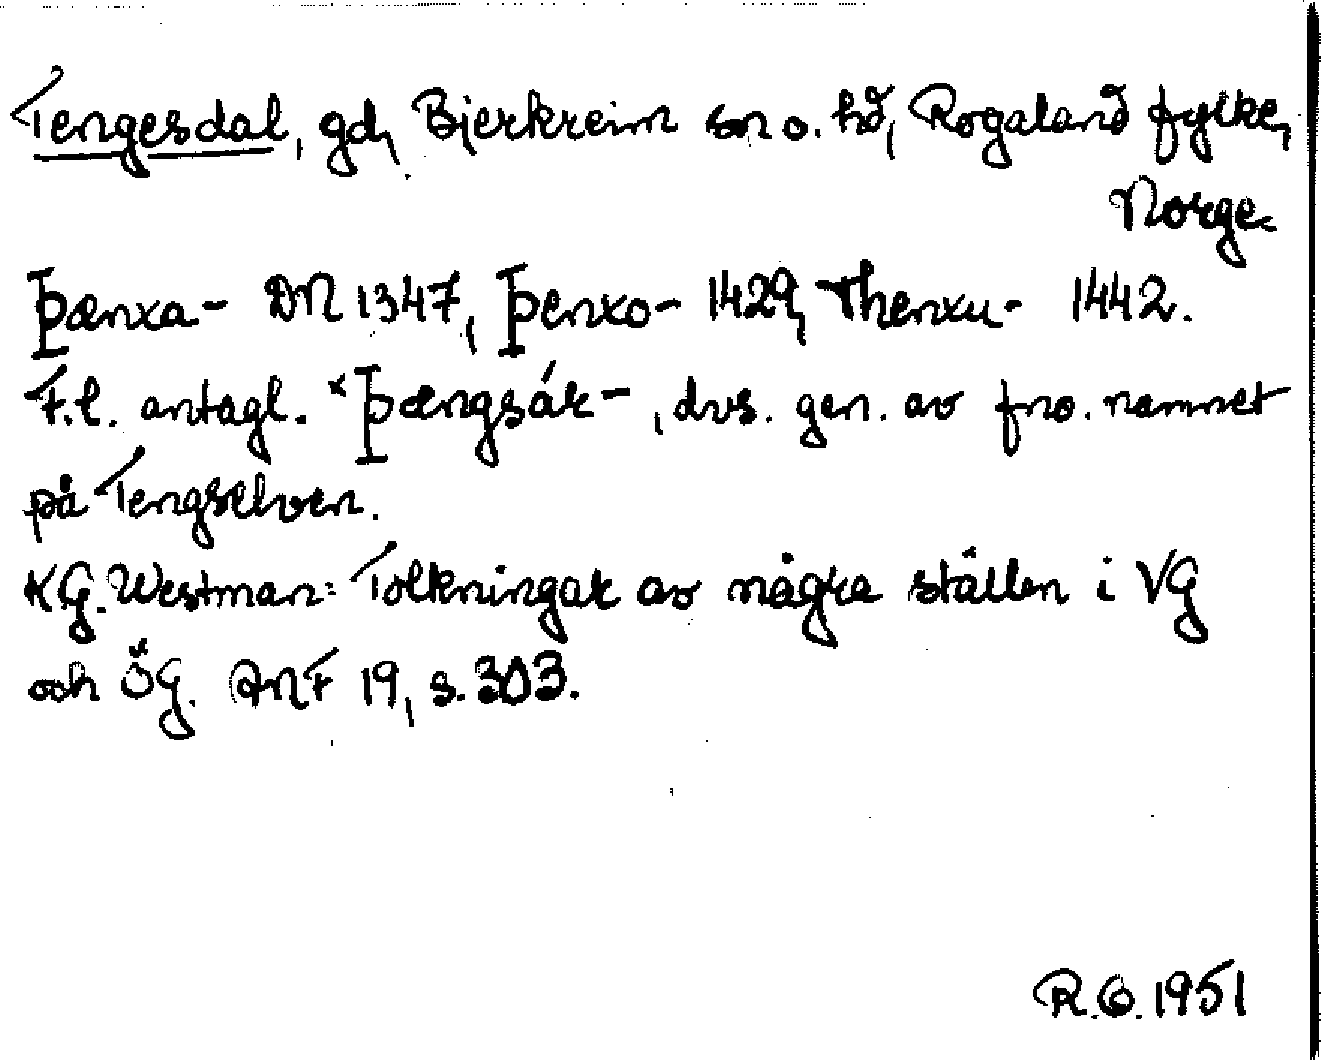 Tengesdal, gd, Bjerkreim sn o. hd, Rogaland fylke,
Norge.
Þænxa- DN 1347, Þenxo- 1429, Thenxu- 1442.
F.l. antagl. *Þængsár-, dvs. gen. av fno. namnet
på Tengselven.
KG. Westman: Tolkningar av några ställen i VG
och ÖG. ANF 19, s. 303.
R.O. 1951